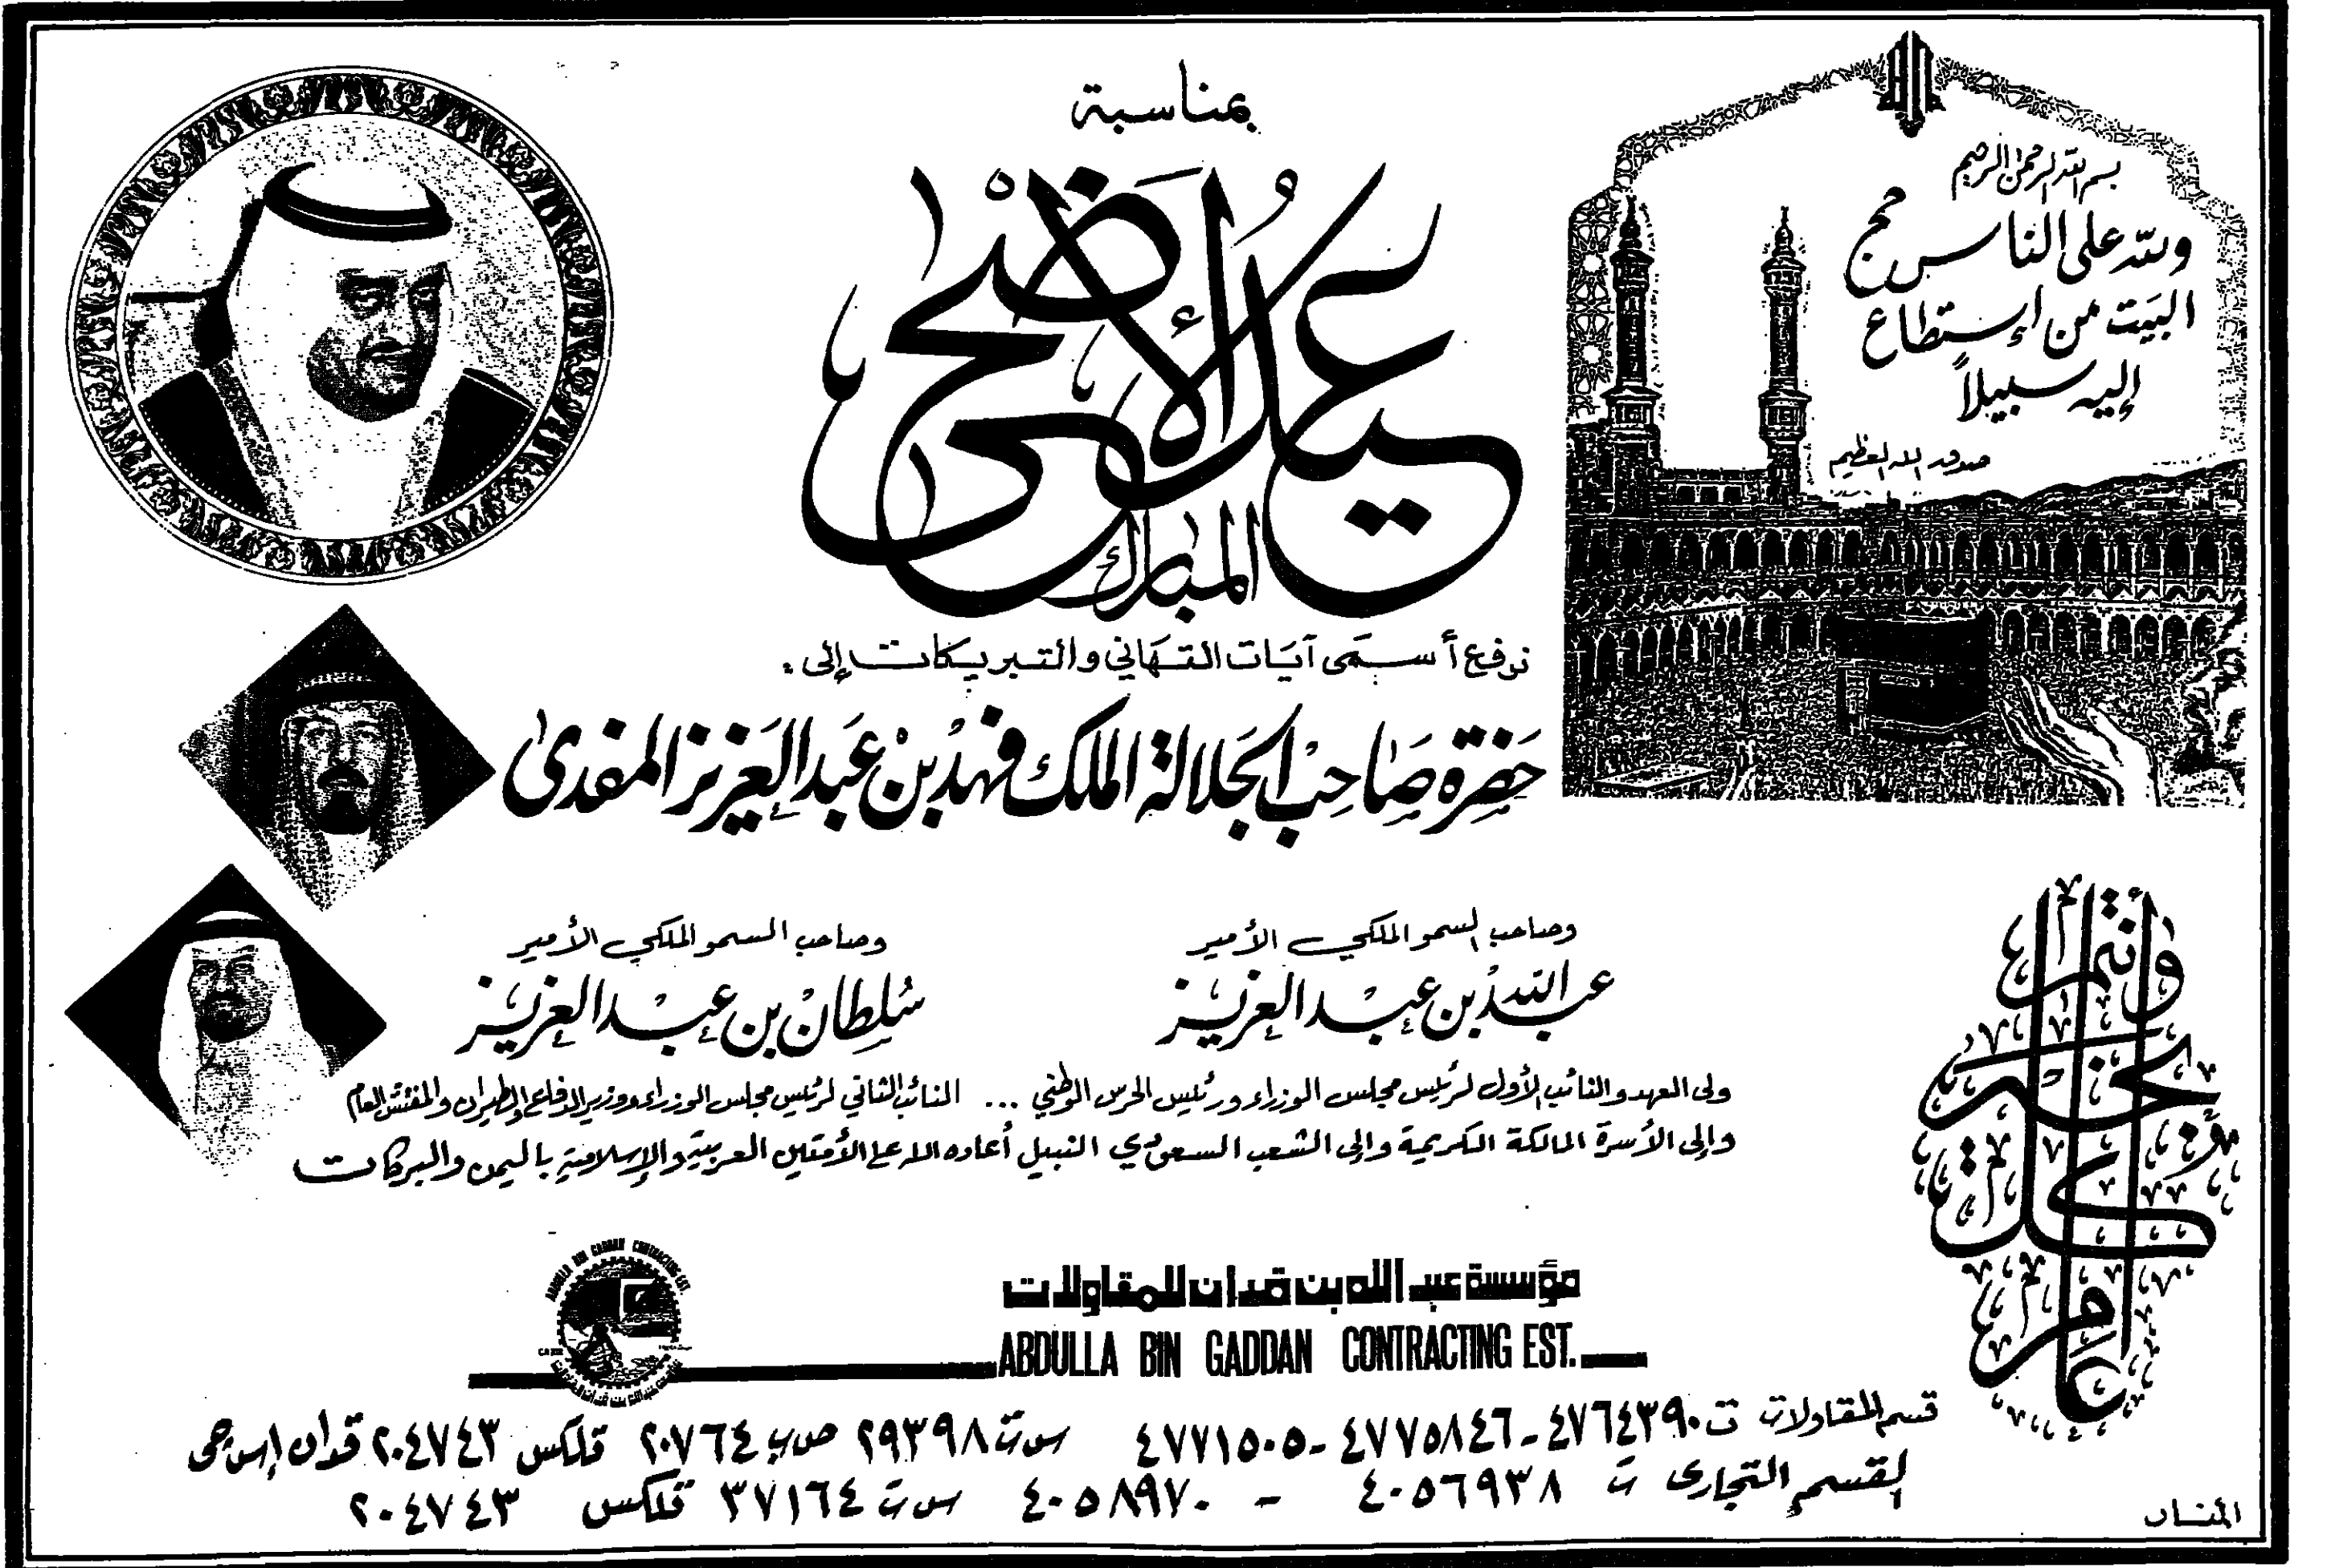 بمناسبة
عيد الأضحى
المبارك
بسم الله الرحمن الرحيم
ولله على الناس حج
البيت من إستطاع
إليه سبيلاً
صدق الله العظيم
نرفع أسمى آيات التهاني والتبريكات إلى :
حضرة صاحب الجلالة الملك فهد بن عبد العزيز المفدى
وصاحب السمو الملكي الأمير
عبد الله بن عبد العزيز
ولى العهد والنائب الأول لرئيس مجلس الوزراء ورئيس الحرس الوطني ...
وصاحب السمو الملكي الأمير
سلطان بن عبد العزيز
النائب الثاني لرئيس مجلس الوزراء ووزير الدفاع والطيران والمفتش العام
وإلى الأسرة المالكة الكريمة وإلى الشعب السعودي النبيل أعاده الله على الأمتين العربية والإسلامية باليمن والبركات
وأنتم
بخير
وكل
عام
ABDULLA BIN GADDAN CONTRACTING EST.
مؤسسة عبد الله بن قدان للمقاولات
ABDULLA BIN GADDAN CONTRACTING EST.
قسم المقاولات ت ٤٧٦٤٣٩٠ - ٤٧٧٥٨٤٦ - ٤٧٧١٥٠٥ س ت ٢٩٣٩٨ ص ب ٢٠٧٦٤ تلكس ٢٠٤٧٤٣ قدان إس جى
القسم التجارى ت ٤٠٥٦٩٣٨ - ٤٠٥٨٩٧٠ س ت ٣٧١٦٤ تلكس ٢٠٤٧٤٣